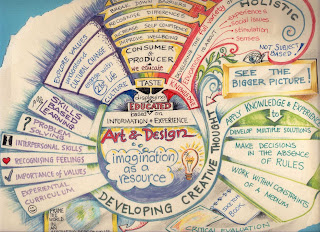 BREAK DOWN BARRIERS
RECOGNISE DIFFERENCES
INCREASE SELF CONFIDENCE
IMPROVE WELLBEING
CONSUMER +
PRODUCER
we educate
TASTE
KNOWLEDGE
CULTURE
EXPLORE VALUES
CULTURAL CHANGE
Life
HOLISTIC
experiences
Social Issues
Stimulation
Senses
NOT SUBJECT
BASED
SEE THE
BIGGER PICTURE!
SKILLS
BASED
LEARNING
? PROBLEM
SOLVING
INTERPERSONAL SKILLS
RECOGNISING FEELINGS
IMPORTANCE OF VALUES
EXPERIENTIAL
CURRICULUM
EDUCATED
based on
INFORMATION + EXPERIENCE
Art & Design
imagination
as a
resource
DEVELOPING CREATIVE THOUGHT
APPLY KNOWLEDGE & EXPERIENCE
TO
DEVELOP MULTIPLE SOLUTIONS
MAKE DECISIONS
IN THE ABSENCE
OF RULES
WORK WITHIN CONSTRAINTS
OF A MEDIUM
BOOK
CRITICAL EVALUATION
THE
WORLD
AN